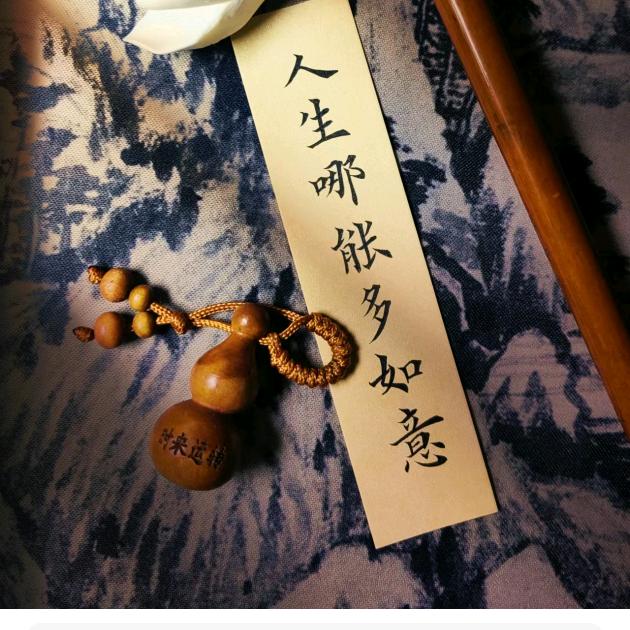 人生哪能多如意
时来运转